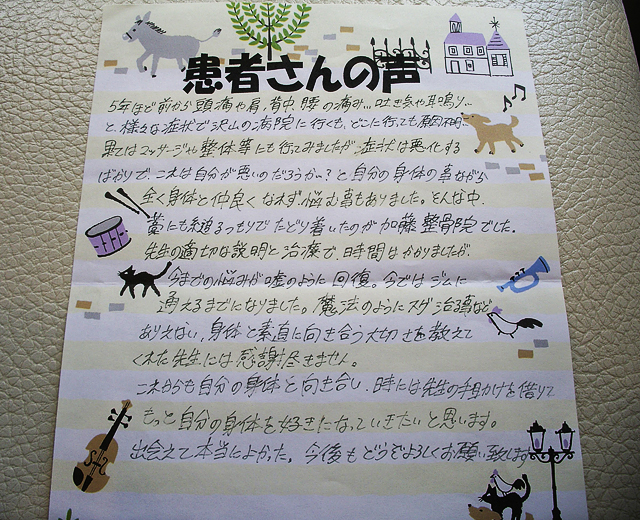 患者さんの声
5年ほど前から頭痛や肩、背中、腰の痛み…吐き気や耳鳴り…
と、様々な症状で沢山の病院に行くも、どこに行っても原因不明…
果てはマッサージや整体等にも行ってみましたが、症状は悪化する
ばかりで、これは自分が悪いのだろうか…?と自分の身体の事ながら
全く身体と仲良くなれず、悩む事もありました。そんな中、
藁にも縋るつもりでたどり着いたのが加藤整骨院でした。
先生の適切な説明と治療で、時間はかかりましたが、
今までの悩みが嘘のように回復。今ではジムに
通えるまでになりました。魔法のようにスグ治る事など
ありえない、身体と素直に向き合う大切さを教えて
くれた先生には感謝尽きません。
これからも自分の身体と向き合い、時には先生の手助けを借りて
もっと自分の身体を好きになっていきたいと思います。
出会えて本当によかった。今後もどうぞよろしくお願い致します